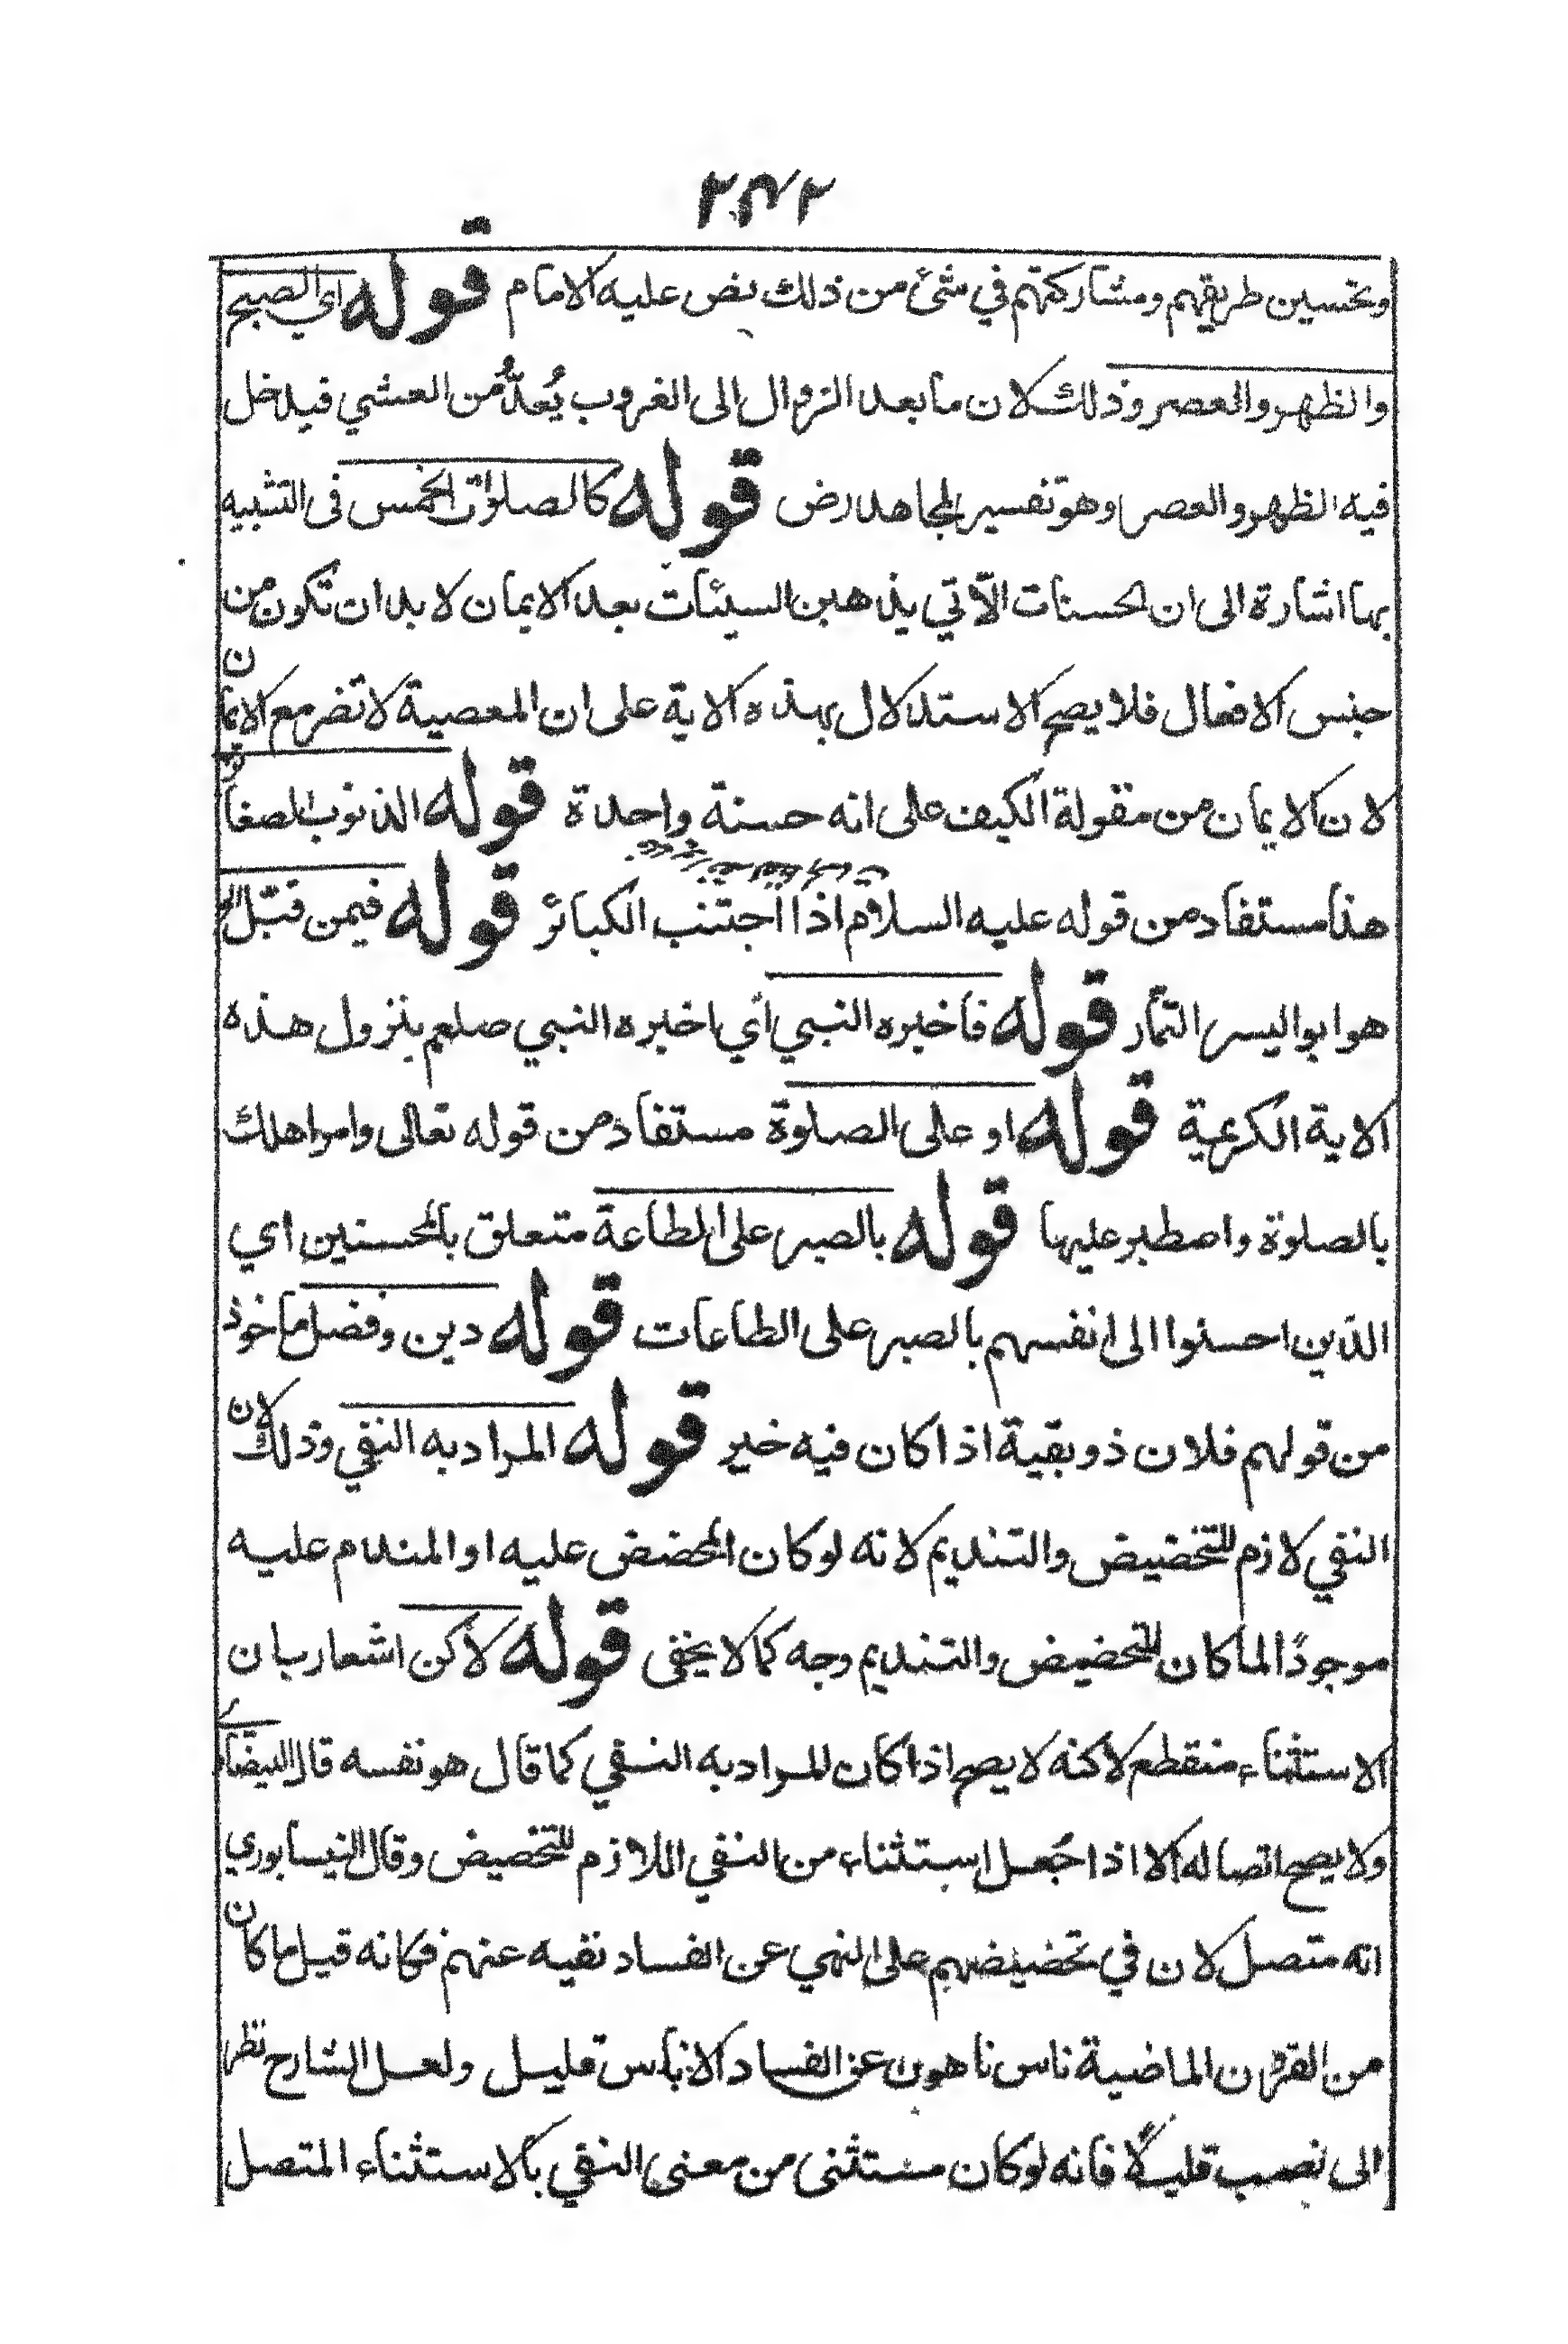 ٢٤٢
وتحسين طريقتهم ومشاركتهم في شئ من ذلك نص عليه الامام قوله اي الصبح
والظهر والعصر وذلك لان ما بعد الزوال الى الغروب يُعدُّ من العشي فيدخل
فيه الظهر والعصر وهو تفسير لمجاهد رض قوله كالصلوات الخمس فى التشبيه
بها اشارة الى ان الحسنات الّاتي يذهبن السيئات بعد الايمان لا بد ان تكون من
جنس الافعال فلا يصح الاستدلال بهذه الاية على ان المعصية لا تضر مع الايمان
لان الايمان من مقولة الكيف على انه حسنة واحدة قوله الذنوب الصغائر
هذا مستفاد من قوله عليه السلام اذا اجتنب الكبائر قوله فيمن قبّل الخ
هو ابو اليسر التمّار قوله فاخبره النبي أي اخبره النبي صلعم بنزول هذه
الاية الكريمة قوله او على الصلوة مستفاد من قوله تعالى وامر اهلك
بالصلوة واصطبر عليها قوله بالصبر على الطاعة متعلق بالمحسنين اي
الذين احسنوا الى انفسهم بالصبر على الطاعات قوله دين وفضل ماخوذ
من قولهم فلان ذو بقية اذا كان فيه خير قوله المراد به النفي وذلك لان
النفي لازم للتحضيض والتنديم لانه لو كان المحضض عليه او المندم عليه
موجودًا لما كان للتحضيض والتنديم وجه كما لا يخفى قوله لاكن اشعار بان
الاستثناء منقطع لاكنه لا يصح اذا كان المراد به النفي كما قال هو نفسه قال البيضاوي
ولا يصح اتصاله الا اذا جُعل استثناء من النفي اللازم للتحضيض وقال النيسابوري
انه متصل لان في تحضيضهم على النهي عن الفساد نفيه عنهم فكانه قيل ما كان
من القرون الماضية ناس ناهون عن الفساد الا ناس قليل ولعل الشارح نظر
الى نصب قليلًا فانه لو كان مستثنى من معنى النفي بالاستثناء المتصل